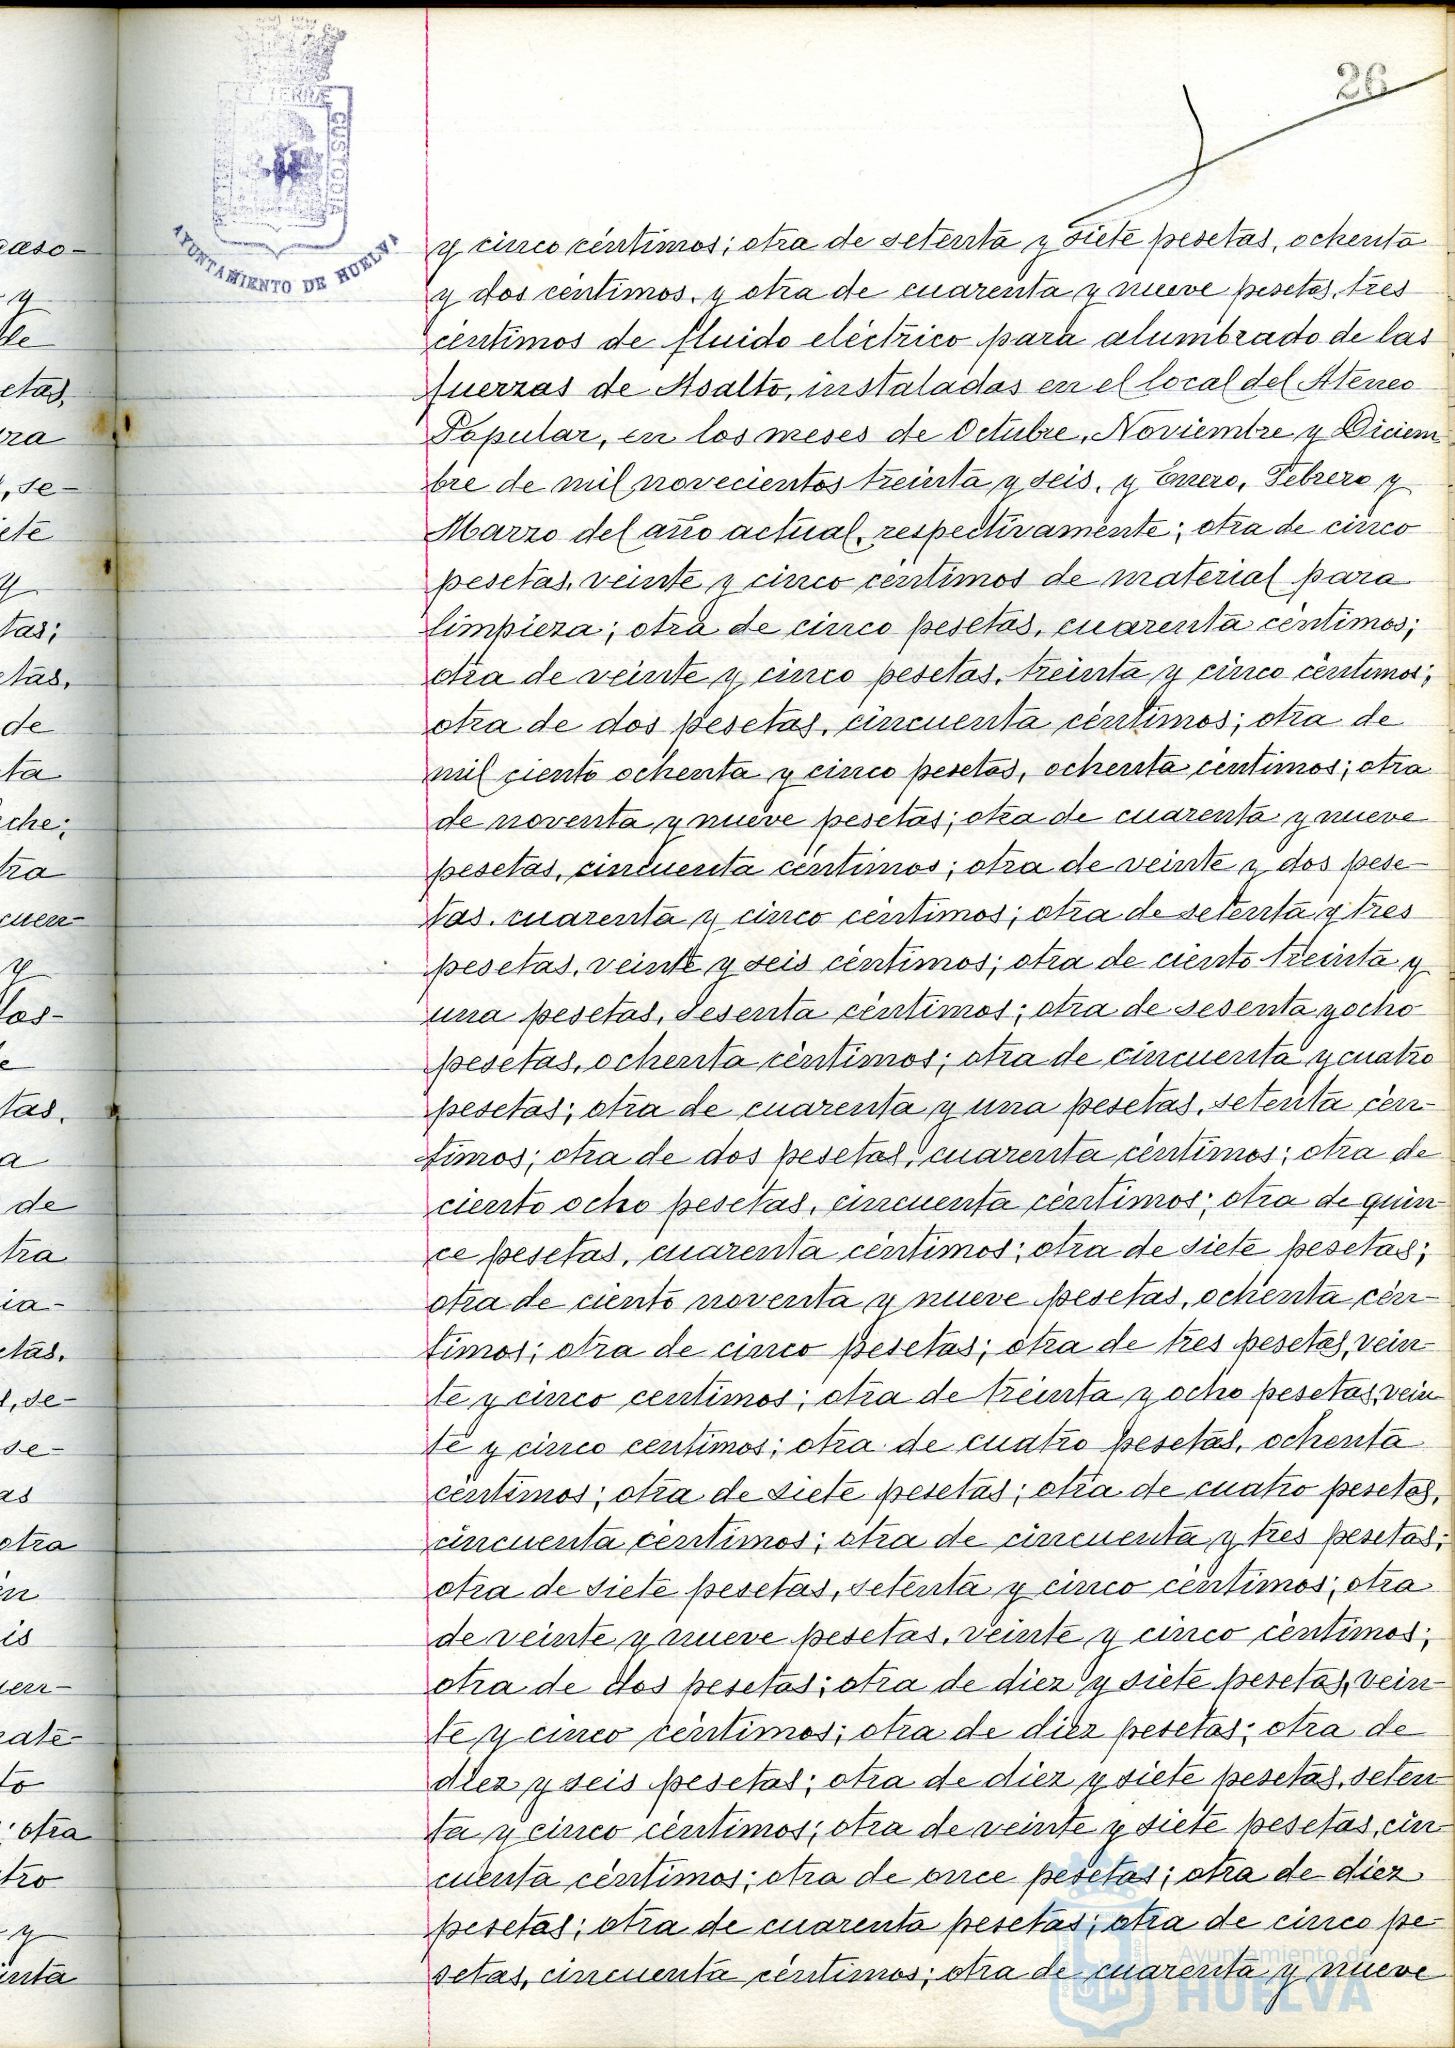 26
TERRÆ
CUSTODIA
AYUNTAMIENTO DE HUELVA
y cinco céntimos; otra de setenta y siete pesetas, ochenta
y dos céntimos, y otra de cuarenta y nueve pesetas, tres
céntimos de fluido eléctrico para alumbrado de las
fuerzas de Asalto, instaladas en el local del Ateneo
Popular, en los meses de Octubre, Noviembre y Diciem
bre de mil novecientos treinta y seis, y Enero, Febrero y
Marzo del año actual, respectivamente; otra de cinco
pesetas, veinte y cinco céntimos de material para
limpieza; otra de cinco pesetas, cuarenta céntimos;
otra de veinte y cinco pesetas, treinta y cinco céntimos;
otra de dos pesetas, cincuenta céntimos; otra de
mil ciento ochenta y cinco pesetas, ochenta céntimos; otra
de noventa y nueve pesetas; otra de cuarenta y nueve
pesetas, cincuenta céntimos; otra de veinte y dos pese-
tas, cuarenta y cinco céntimos; otra de setenta y tres
pesetas, veinte y seis céntimos; otra de ciento treinta y
una pesetas, sesenta céntimos; otra de sesenta y ocho
pesetas, ochenta céntimos; otra de cincuenta y cuatro
pesetas; otra de cuarenta y una pesetas, setenta cén-
timos; otra de dos pesetas, cuarenta céntimos; otra de
ciento ocho pesetas, cincuenta céntimos; otra de quin-
ce pesetas, cuarenta céntimos; otra de siete pesetas;
otra de ciento noventa y nueve pesetas, ochenta cén-
timos; otra de cinco pesetas; otra de tres pesetas, vein-
te y cinco centimos; otra de treinta y ocho pesetas, vein
te y cinco centimos; otra de cuatro pesetas, ochenta
céntimos; otra de siete pesetas; otra de cuatro pesetas,
cincuenta céntimos; otra de cincuenta y tres pesetas;
otra de siete pesetas, setenta y cinco céntimos; otra
de veinte y nueve pesetas, veinte y cinco céntimos;
otra de dos pesetas; otra de diez y siete pesetas, vein-
te y cinco céntimos; otra de diez pesetas; otra de
diez y seis pesetas; otra de diez y siete pesetas, seten
ta y cinco céntimos; otra de veinte y siete pesetas, cin-
cuenta céntimos; otra de once pesetas; otra de diez
pesetas; otra de cuarenta pesetas; otra de cinco pe-
setas, cincuenta céntimos; otra de cuarenta y nueve
Ayuntamiento de
HUELVA